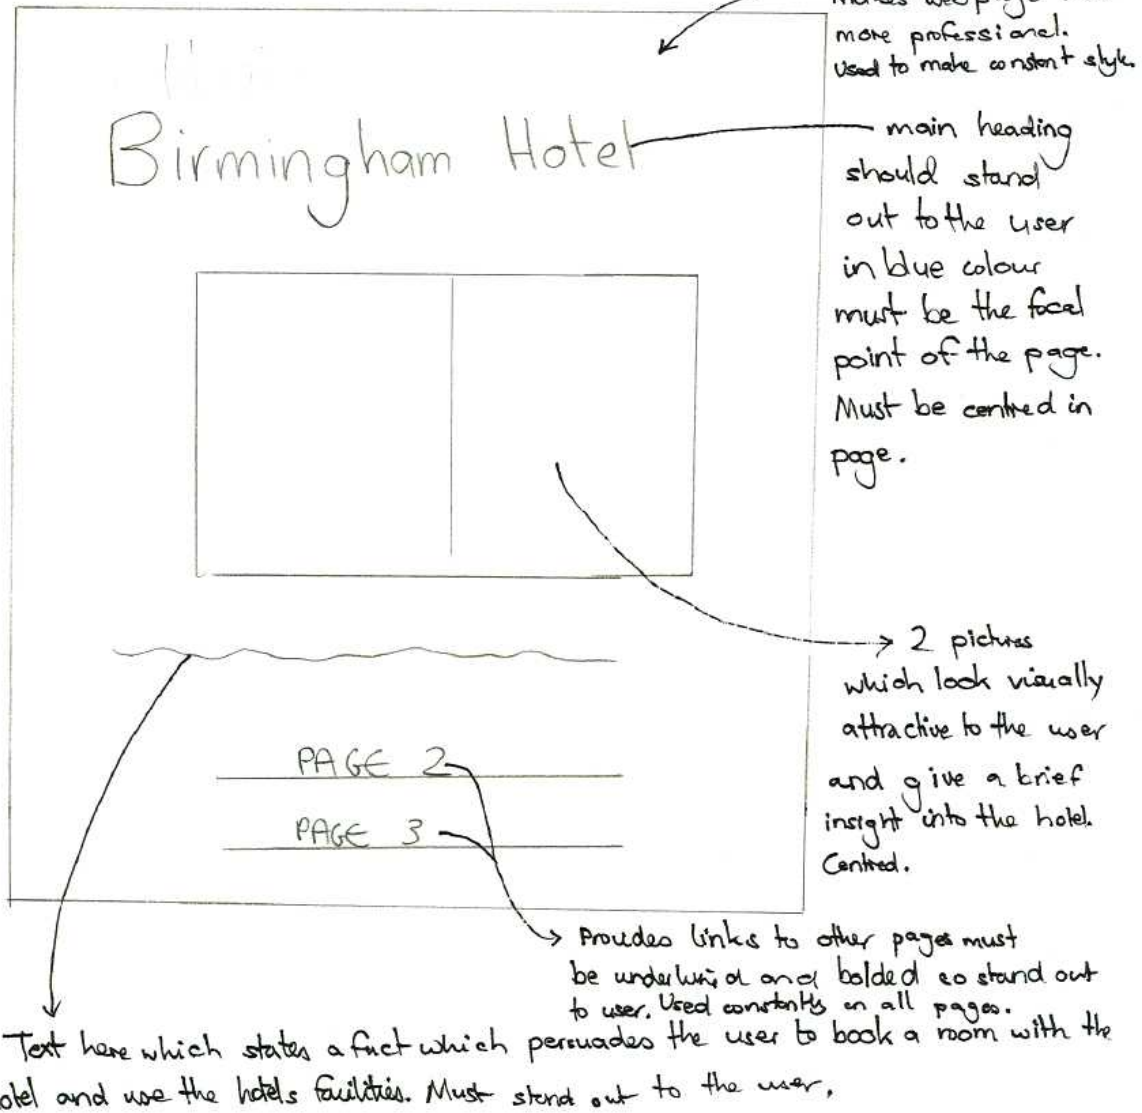 more professional.
Used to make constant style.
Birmingham Hotel
main heading
should stand
out to the user
in blue colour
must be the focal
point of the page.
Must be centred in
page.
2 pictures
which look visually
attractive to the user
and give a brief
insight into the hotel.
Centred.
PAGE 2
PAGE 3
Provides links to other pages must
be underlined and bolded so stand out
to user. Used constantly on all pages.
Text here which states a fact which persuades the user to book a room with the
and use the hotels facilities. Must stand out to the user.